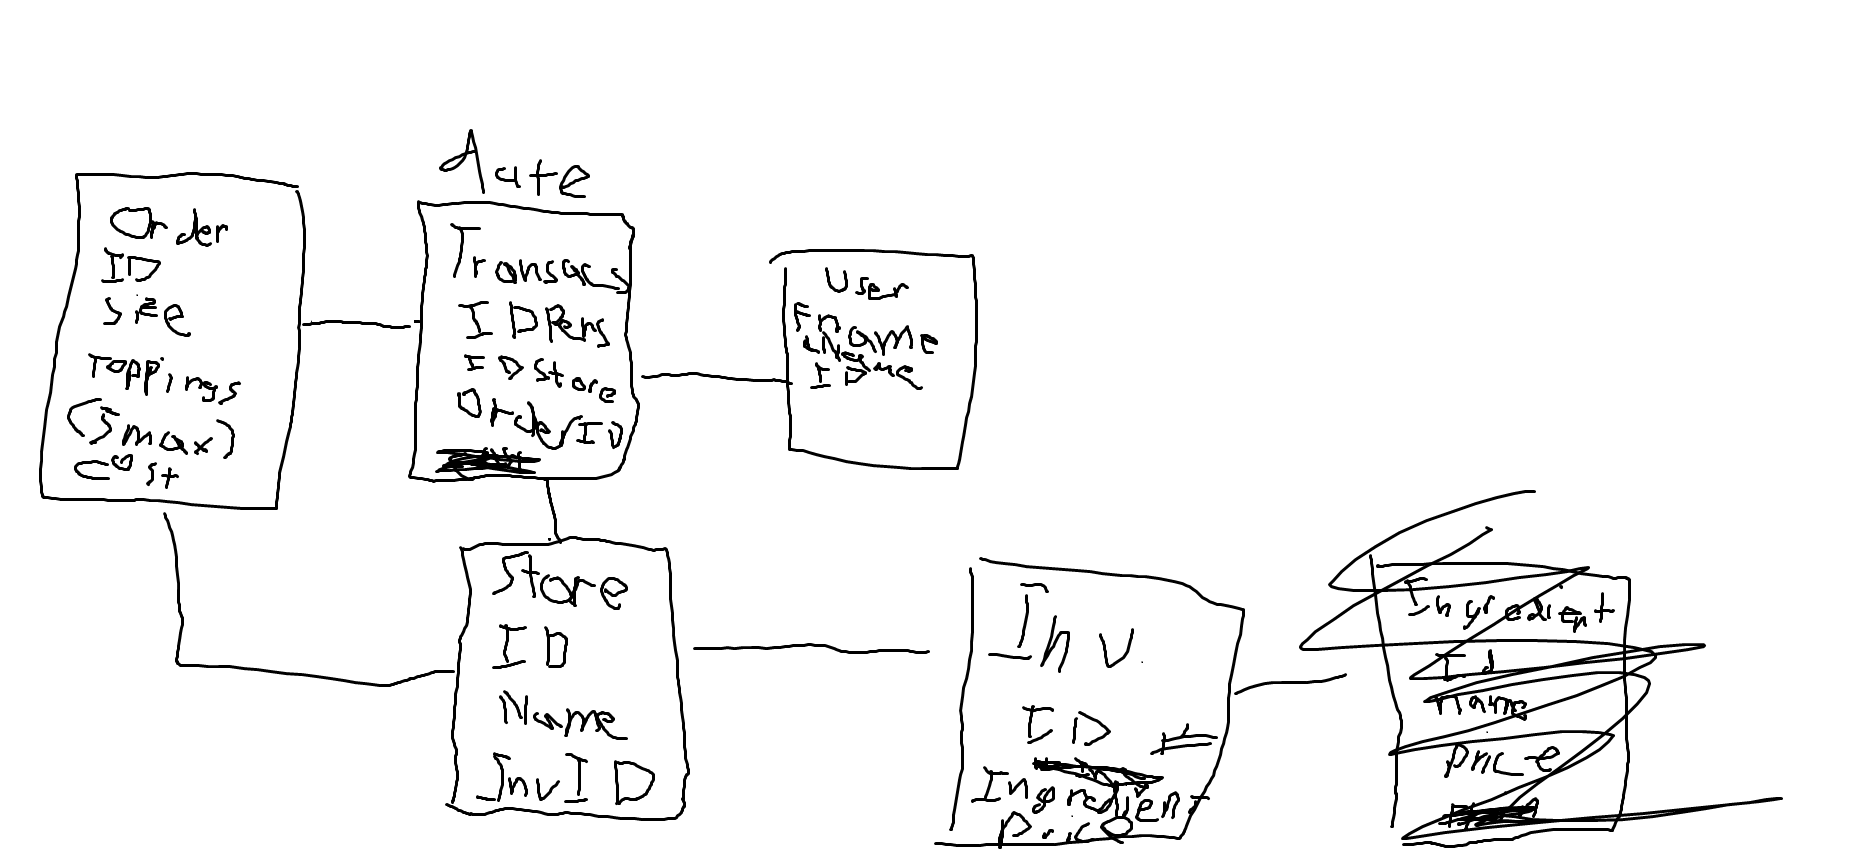 Date
Order
ID
Size
Toppings
(5max)
cost
Transacs
IDPers
IDStore
OrderID
User
Fname
LName
ID
Store
ID
Name
InvID
Inv
ID
Ingredient
price
Ingredient
Id
name
price